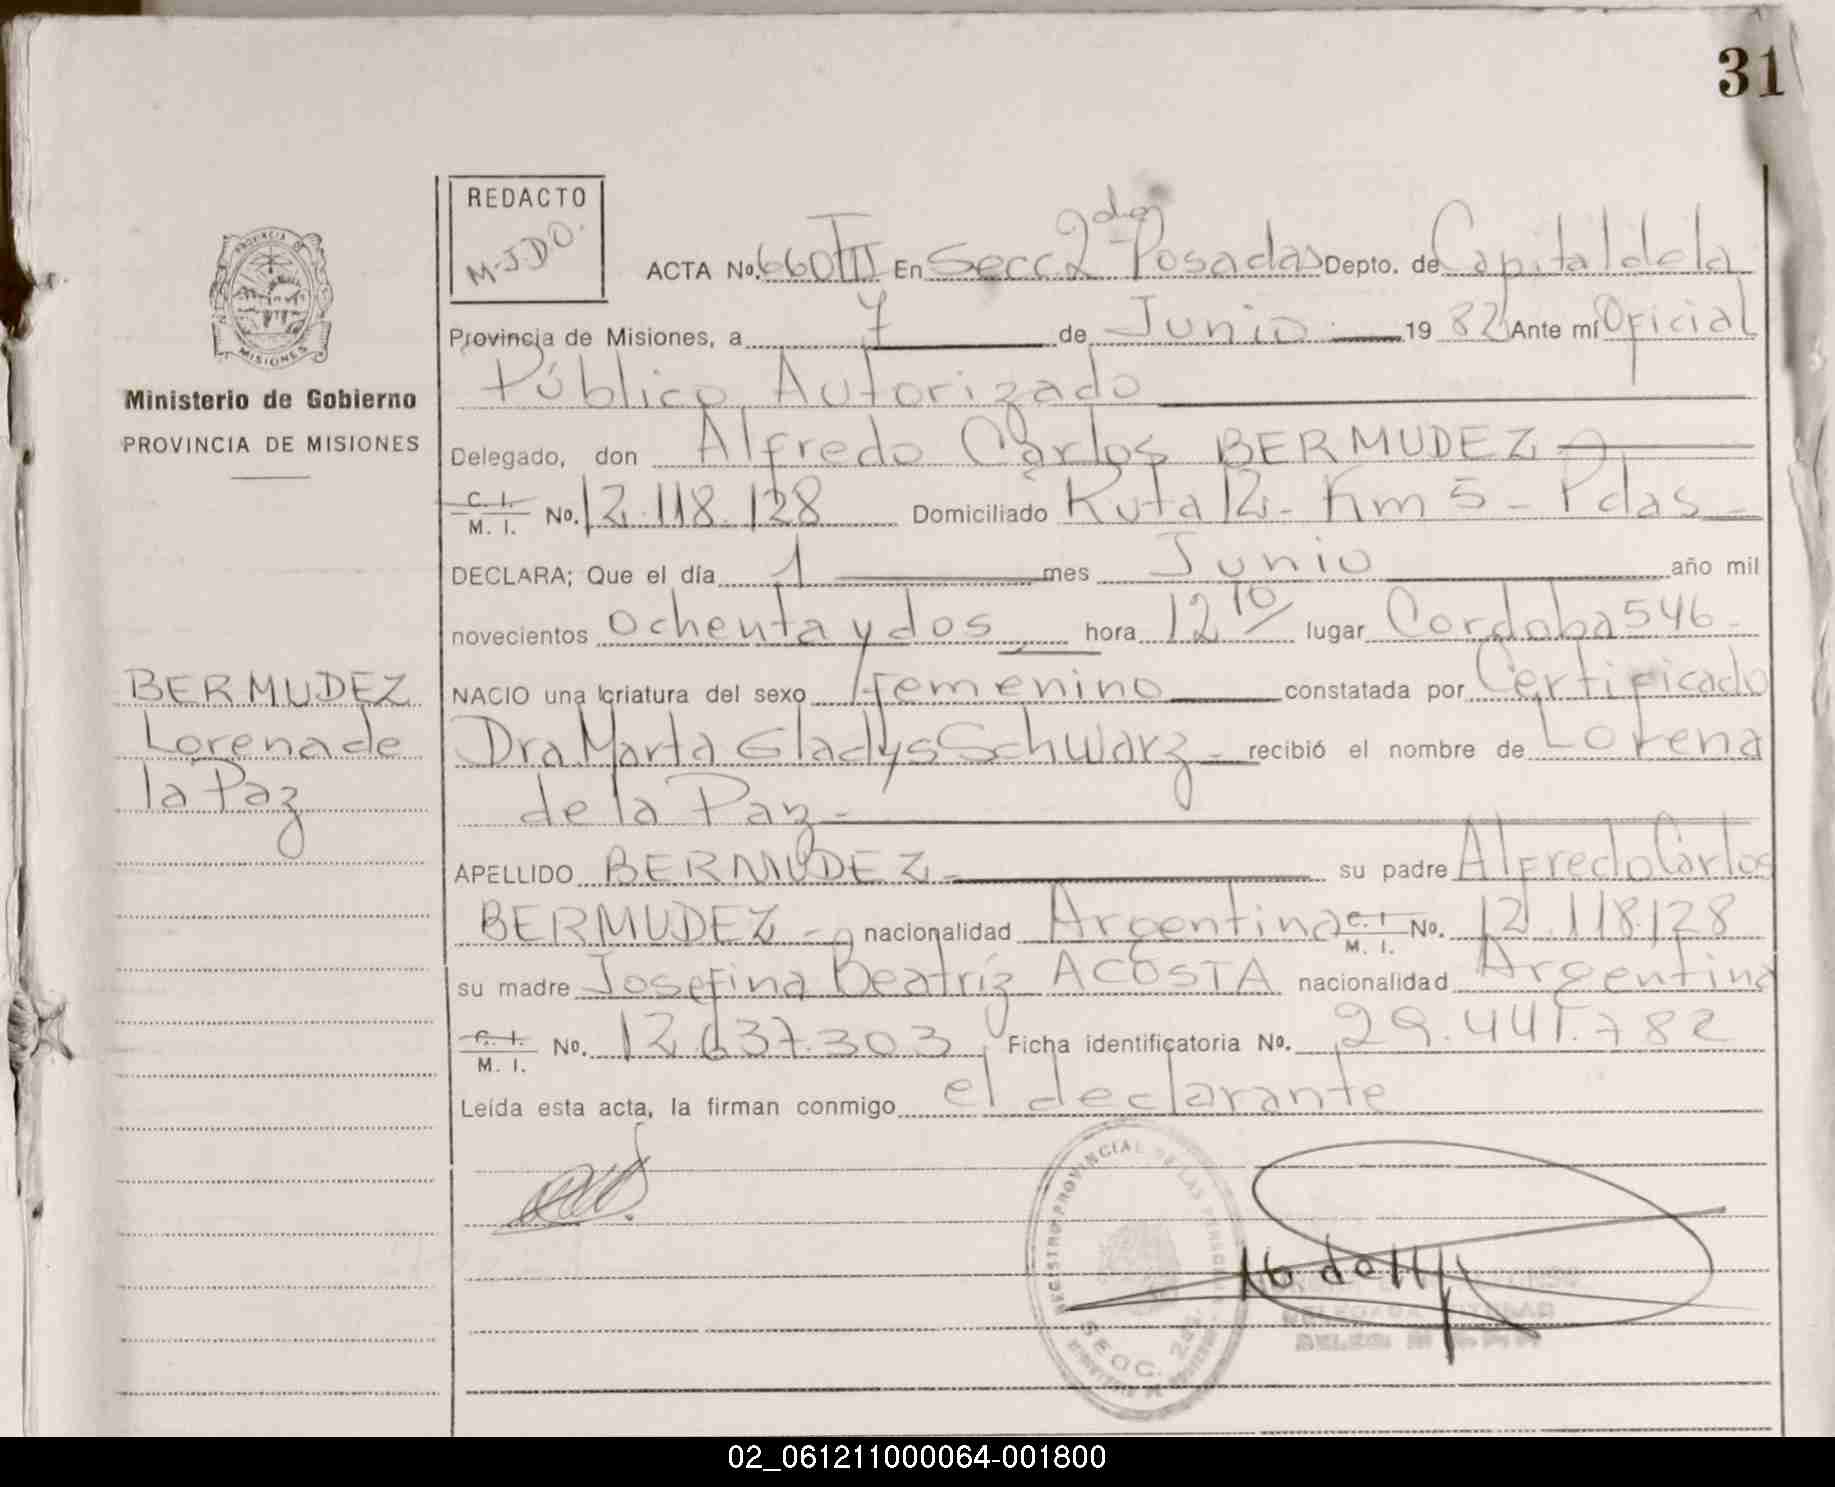 31
REDACTO
M-JDO.
ACTA No. 660 TIII En Secc. 2da Posadas Depto. de Capital de la
Provincia de Misiones, a 7 de Junio 1982 Ante mí Oficial
Público Autorizado
Delegado, don Alfredo Carlos BERMUDEZ
C. I.
M. I. No. 12.118.128 Domiciliado Ruta 12 - Km 5 - Pdas -
DECLARA; Que el día 1 mes Junio año mil
novecientos ochenta y dos hora 12 10 lugar Cordoba 546 -
NACIO una criatura del sexo femenino constatada por Certificado
Dra Marta Gladys Schwarz - recibió el nombre de Lorena
de la Paz -
APELLIDO BERMUDEZ - su padre Alfredo Carlos
BERMUDEZ - nacionalidad Argentina C. I. M. I. No. 12.118.128
su madre Josefina Beatríz ACOSTA nacionalidad Argentina
C. I.
M. I. No. 12.637.303 Ficha identificatoria No. 29.441.782
Leída esta acta, la firman conmigo el declarante
PROVINCIA DE
MISIONES
Ministerio de Gobierno
PROVINCIA DE MISIONES
BERMUDEZ
Lorena de
la Paz
REGISTRO PROVINCIAL DE LAS PERSONAS
SECC. 2da.
02_061211000064-001800